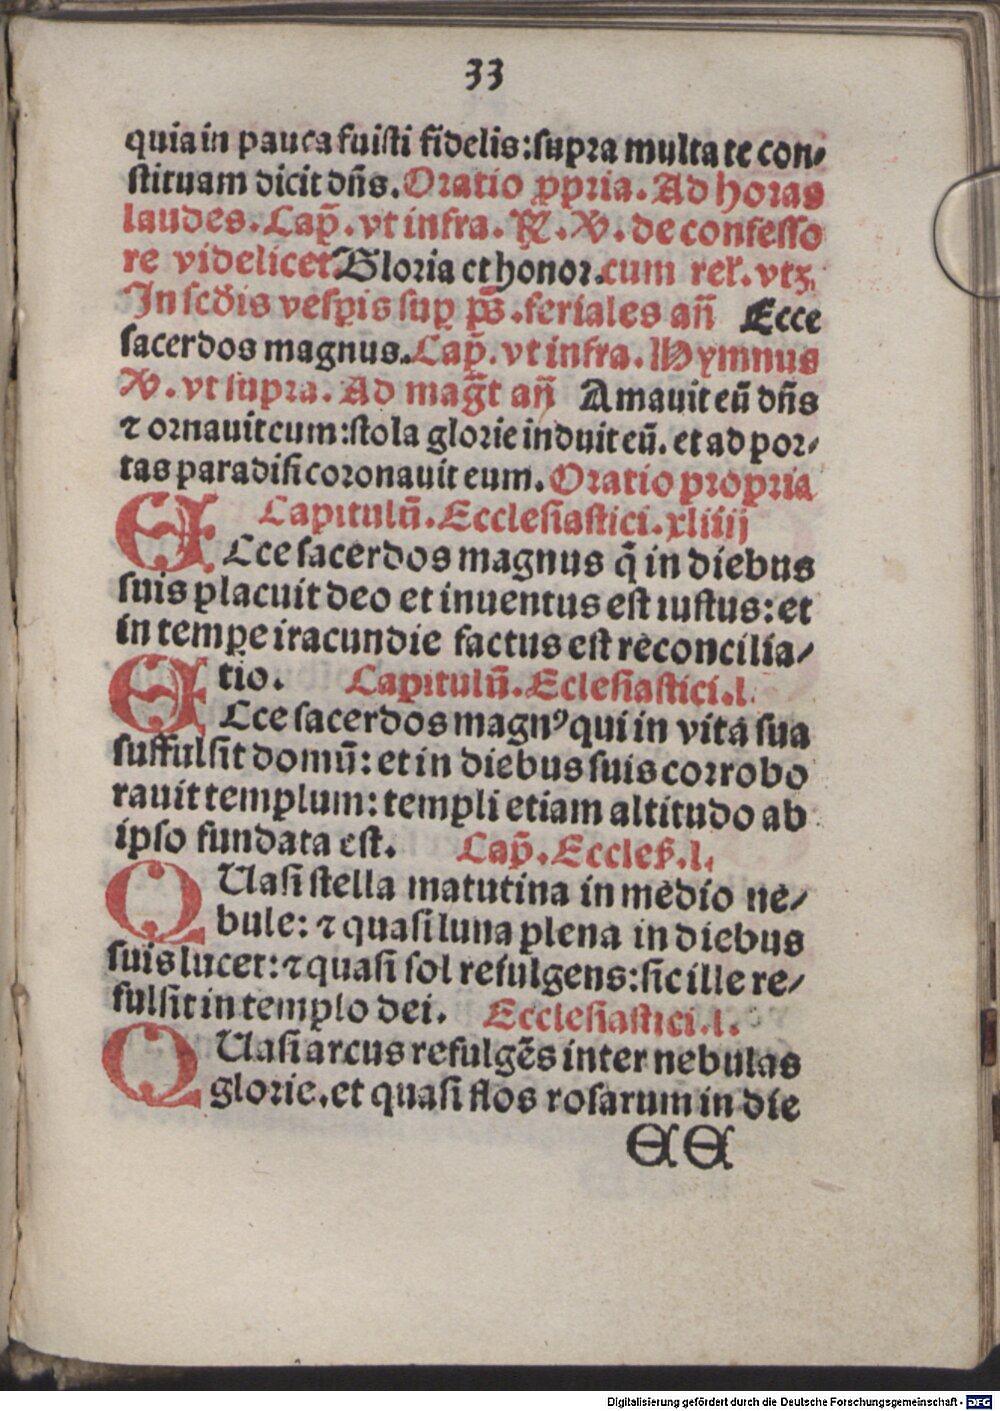 33
quia in pauca fuisti fidelis: supra multa te con⸗
stituam dicit dñs. Oratio ꝓpria. Ad horas
laudes. Cap̃. vt infra. ℟. ℣. de confesso
re videlicet Gloria et honor. cum rel̃. vtꝫ.
In scd̃is vesꝑis suꝑ ps̃. feriales añ Ecce
sacerdos magnus. Cap̃. vt infra. Hymnus
℣. vt supra. Ad mag̃t añ Amauit eũ dñs
⁊ ornauit eum: stola glorie induit eũ. et ad por⸗
tas paradisi coronauit eum. Oratio propria
Capitulũ. Ecclesiastici. xliiij
ECce sacerdos magnus q̃ in diebus
suis placuit deo et inuentus est iustus: et
in temꝑe iracundie factus est reconcilia⸗
tio. Capitulũ. Eclesiastici. l.
ECce sacerdos magnꝰ qui in vita sua
suffulsit domũ: et in diebus suis corrobo
rauit templum: templi etiam altitudo ab
ipso fundata est. Cap̃. Eccles̃. l.
QUasi stella matutina in medio ne⸗
bule: ⁊ quasi luna plena in diebus
suis lucet: ⁊ quasi sol refulgens: sic ille re⸗
fulsit in templo dei. Ecclesiastici. l.
QUasi arcus refulgẽs inter nebulas
glorie. et quasi flos rosarum in die
EE
Digitalisierung gefördert durch die Deutsche Forschungsgemeinschaft - DFG